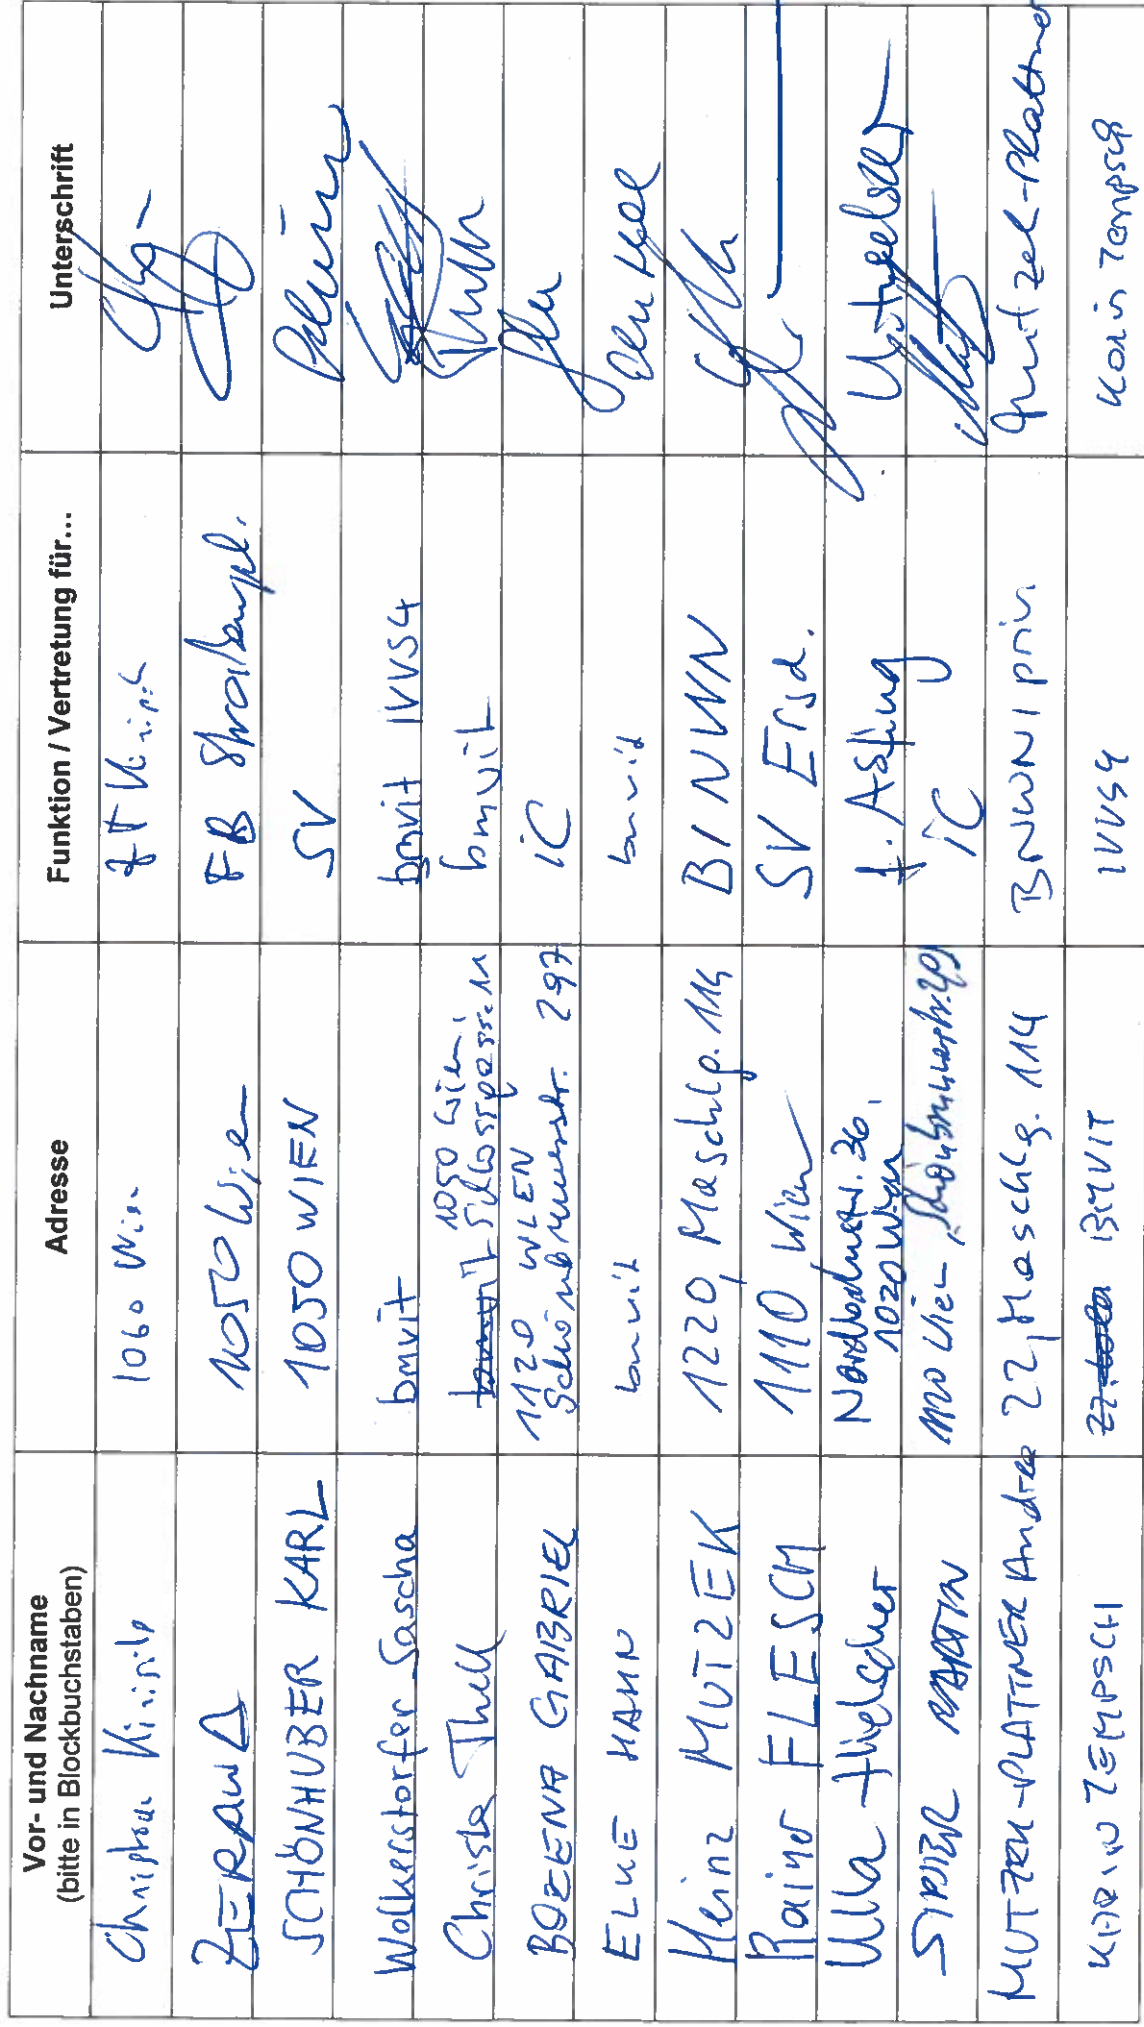 Vor- und Nachname
(bitte in Blockbuchstaben)
Adresse
Funktion / Vertretung für...
Unterschrift
1060 Wien
1050 Wien
FB
SCHÖNHUBER KARL
1050 WIEN
SV
Wolkerstorfer Sascha
bmvit
bmvit IVVS4
Christa Thell
1050 Wien,
bmvit
BOZENA GABRIEL
1120 WIEN
Schönbrunnerstr. 297
iC
ELKE HAHN
bmvit
bmvit
Heinz MUTZEK
1220, Maschlg. 114
BI NWN
Rainer FLESCH
1110 Wien
SV Ersch.
Ulla Hielscher
Nordbahnstr. 36,
1020 Wien
MARTIN
iC
MUTZEK-PLATTNER Andrea
22, Maschlg. 114
BNWN / priv.
Mutzek-Plattner
KARIN ZEMPSCH
BMVIT
IVVS4
Karin Zempsch